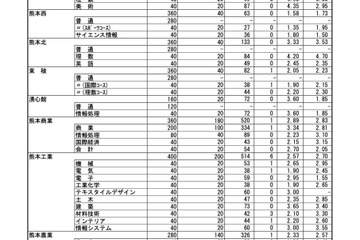 美 術 40 20 87 0 4.35 2.95
熊本西 360 40 63 0 1.58 1.73
普 通 280 - - - - -
〃(ｽﾎﾟｰﾂｺｰｽ) 40 20 27 0 1.35 1.95
サイエンス情報 40 20 36 0 1.80 1.50
熊本北 360 40 133 0 3.33 3.53
普 通 280 - - - - -
理 数 40 20 84 0 4.20 4.70
英 語 40 20 49 0 2.45 2.35
東 稜 280 40 82 1 2.05 2.23
〃(国際コース) 40 20 38 1 1.90 2.15
〃(理数コース) 40 20 44 0 2.20 2.30
湧心館 160 20 72 0 3.60 1.85
普 通 120 - - - - -
情報処理 40 20 72 0 3.60 1.85
熊本商業 360 180 520 1 2.89 2.83
商 業 200 100 334 1 3.34 2.81
情報処理 80 40 89 0 2.23 3.10
国際経済 40 20 43 0 2.15 3.15
会 計 40 20 54 0 2.70 2.05
熊本工業 400 200 514 6 2.57 2.70
機 械 40 20 59 0 2.95
電 気 40 20 38 1 1.90 2.45
電 子 40 20 59 0 2.95 1.55
工業化学 40 20 38 1 1.90 2.65
テキスタイルデザイン 40 20 60 0 3.00
土 木 40 20 45 0 2.25
建 築 40 20 73 0 3.65 3.40
材料技術 40 20 42 3 2.10 3.30
インテリア 40 20 44 1 2.20 2.60
情報システム 40 20 60 0 3.00 3.55
熊本農業 280 140 326 1 2.33 2.57